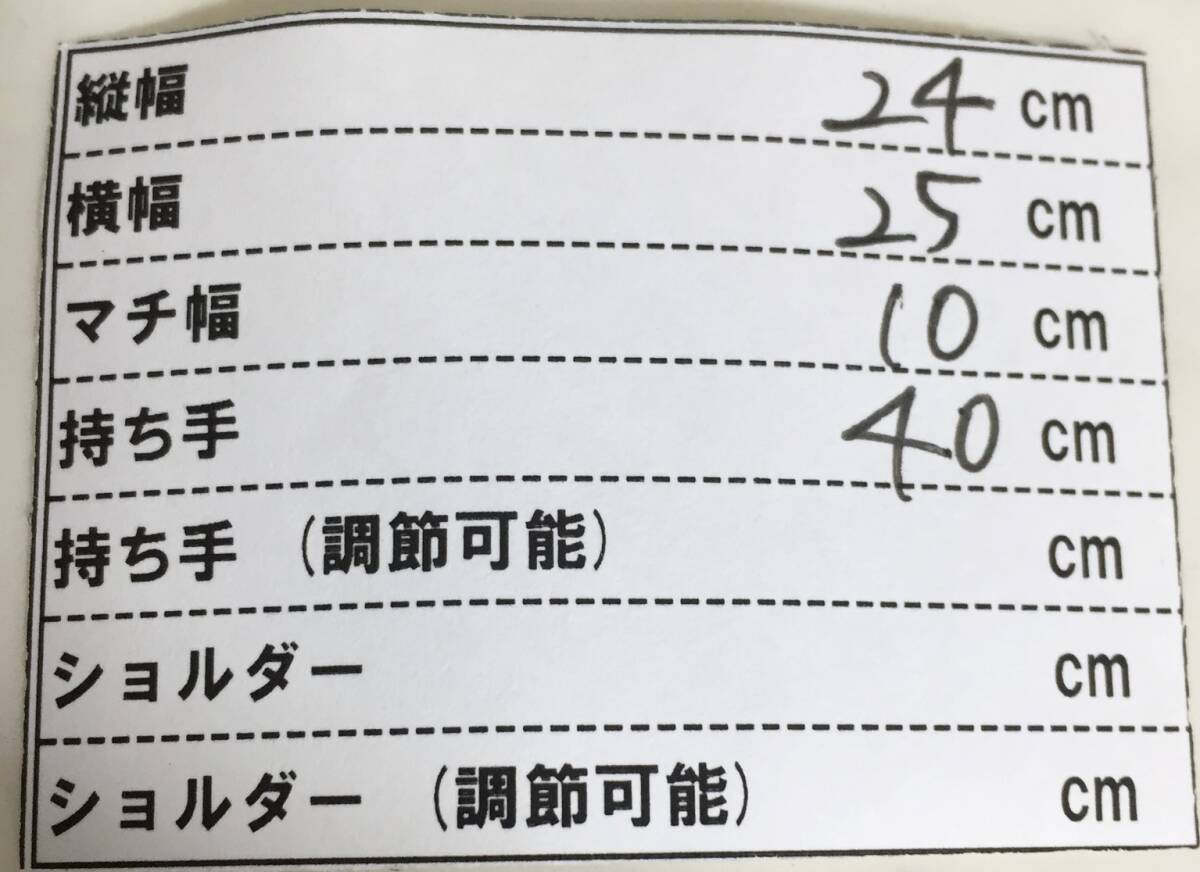 縦幅 24 cm
横幅 25 cm
マチ幅 10 cm
持ち手 40 cm
持ち手 (調節可能) cm
ショルダー cm
ショルダー (調節可能) cm